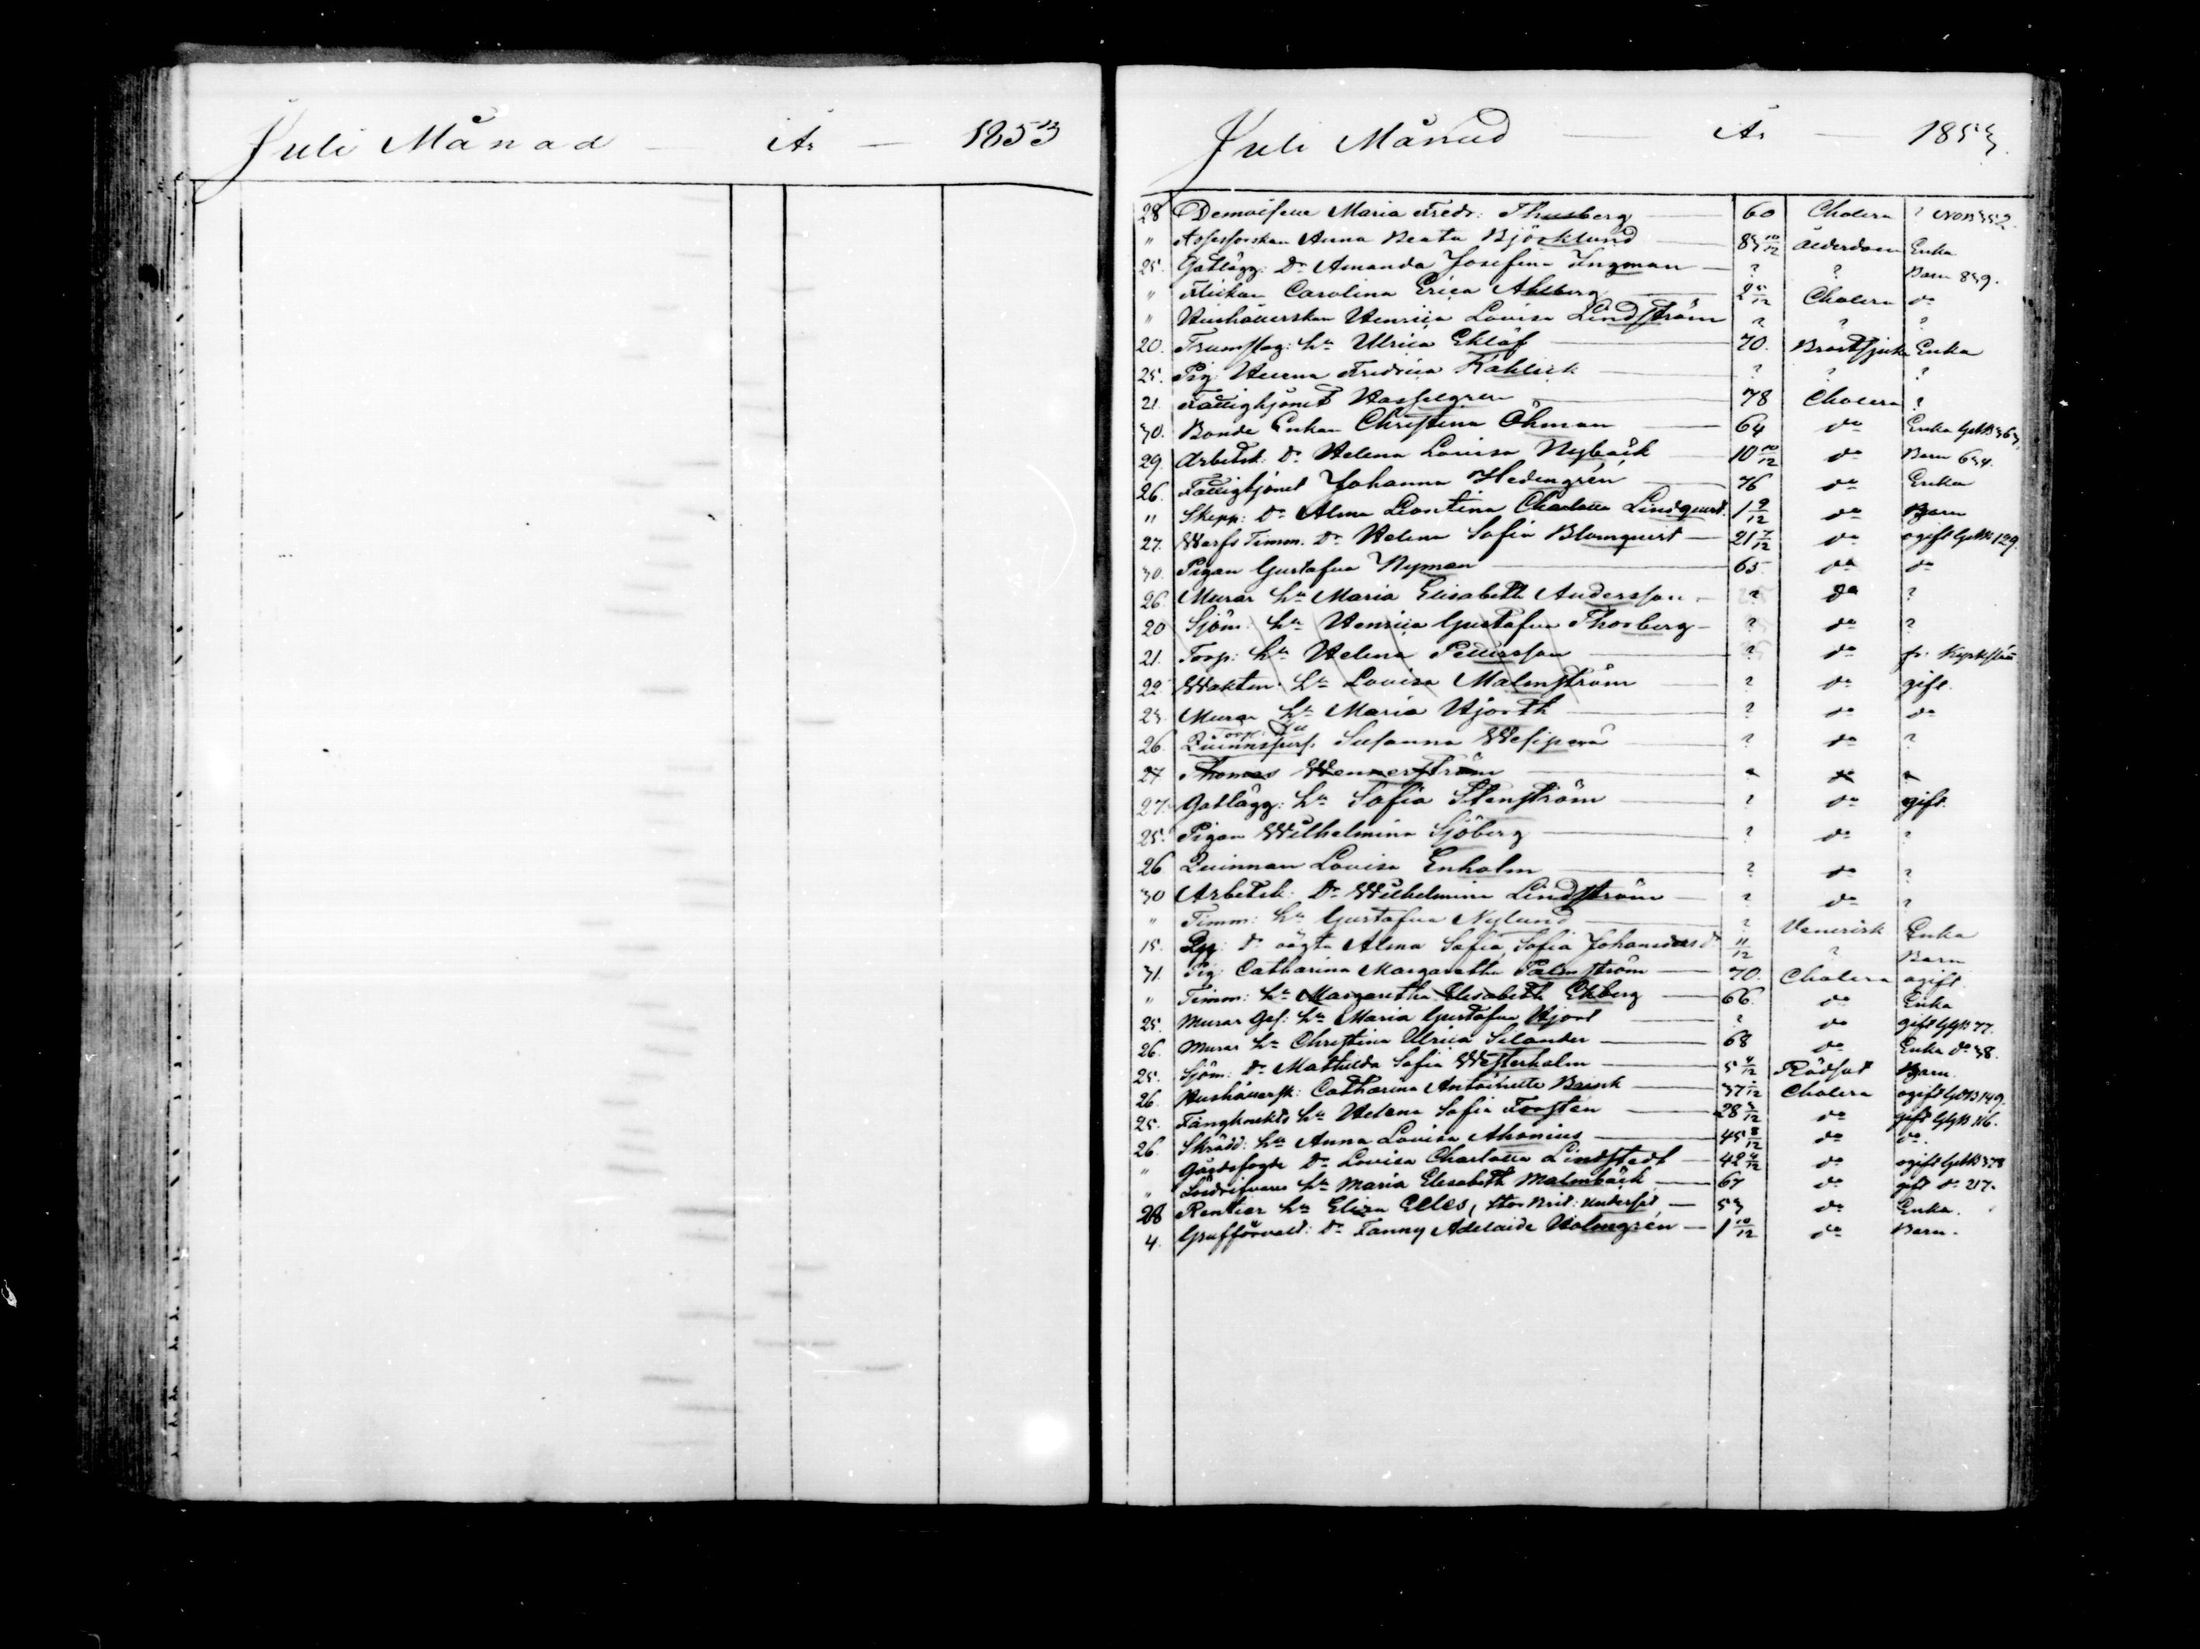 Juli Månad - År - 1853
Juli Månad - År - 1853.
28 Demoiselle Maria Fredr: Thusberg 60 Cholera ?
" Anna Beata Björklund 83 10/12 Ålderdom Enka
25. Gatlägg: Dr Amanda Josefina Ingman ? ? Barn 859.
" Flickan Carolina Erica Ahlberg 2 5/12 Cholera do
" Hushållerskan Henrica Lovisa Lindström ? ? ?
20. Trumslag: hu Ulrica Eklöf 70. Bröstsjuka Enka
25. Pig: Helena Fredrica Kahlick ? ? ?
21. Fattighjonet Hasselgren 78 Cholera ?
30. Bonde Enkan Christina Öhman 64 do Enka
29. Arbetsk: Dr Helena Lovisa Nybäck 10 10/12 do Barn 634.
26. Fattighjonet Johanna Hedengrén 76 do Enka
" Skepp: Dr Alma Leontina Charlotta Lindqvist. 1 9/12 do Barn
27. Warfs Timm. Dr Helena Sofia Blomqvist 21 7/12 do ogift 129.
30. Pigan Gustafva Nyman 65 do do
26. Murar hu Maria Elisabeth Andersson ? do ?
20 Sjöm: hu Henrica Gustafva Thorberg ? do ?
21. Torp: hu Helena Pettersson ? do fr:
22. Waktm: hu Lovisa Malmström ? do gift.
23. Murar hu Maria Hjorth ? do do
Torp: hu
26. Quinnspers. Susanna ? do ?
27 Thomas Wennerström
27. Gatlägg: hu Sofia Stenström ? do gift.
25. Pigan Wilhelmina Sjöberg ? do ?
26 Quinnan Lovisa Enholm ? do ?
30 Arbetsk. Dr Wilhelmina Lindström ? do ?
" Timm: hu Gustafva Nylund ? Venerisk Enka
15. Dr oägta Alma Sofia, Sofia Johansdr 11/12 ? Barn
31. Pig: Catharina Margaretha Palmström 70. Cholera ogift.
" Timm: hu Margaretha Elisabeth Ekberg 66. do Enka
25. Murar Ges: hu Maria Gustafva Hjort ? do gift 77.
26. Murar hu Christina Ulrica Selander 68 do Enka do 38.
25. Sjöm: Dr Mathilda Sofia Westerholm 5 4/12 Rödsot Barn.
26. Hushållersk: Catharina Antoinette Brink 37 Cholera ogift 149.
25. Fångknekts hu Helena Sofia Forstén 28 do gift 116.
26. Skrädd: hu Anna Lovisa Ahonius 45 8/12 do do.
" Gårdsfogde Dr Lovisa Charlotta Lindstedt 42 4/12 do ogift 378
" hu Maria Elisabeth Malmbäck 67 do gift do 217.
28 Rentier hu Eliza Elles, Stor Brit: Undersåt 53 do Enka.
4. Dr Fanny Adelaide Holmgrén 1 10/12 do Barn.